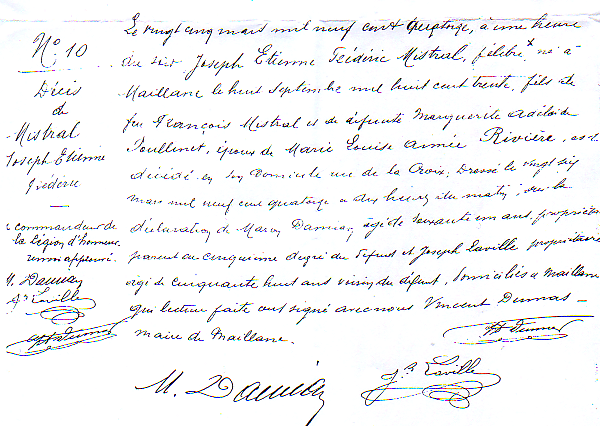 N° 10
Décès
de
Mistral
Joseph Etienne
Frédéric
x commandeur de
la Légion d'honneur
renvoi approuvé.
M. Daumas
Jh Laville
Le vingt cinq mars mil neuf cent quatorze, à une heure
du soir Joseph Etienne Frédéric Mistral, félibre x né à
Maillane le huit septembre mil huit cent trente, fils de
feu François Mistral et de défunte Marguerite Adélaïde
Poullinet, époux de Marie Louise Aimée Rivière, est
décédé en son domicile rue de la Croix. Dressé le vingt six
mars mil neuf cent quatorze à dix heures du matin, sur la
déclaration de Damian, âgé de soixante un ans, propriétaire
parent au cinquième degré du défunt et Joseph Laville propriétaire
âgé de cinquante huit ans voisin du défunt, domiciliés à Maillane
qui lecture faite ont signé avec nous Vincent Dumas
maire de Maillane.
Jh Laville